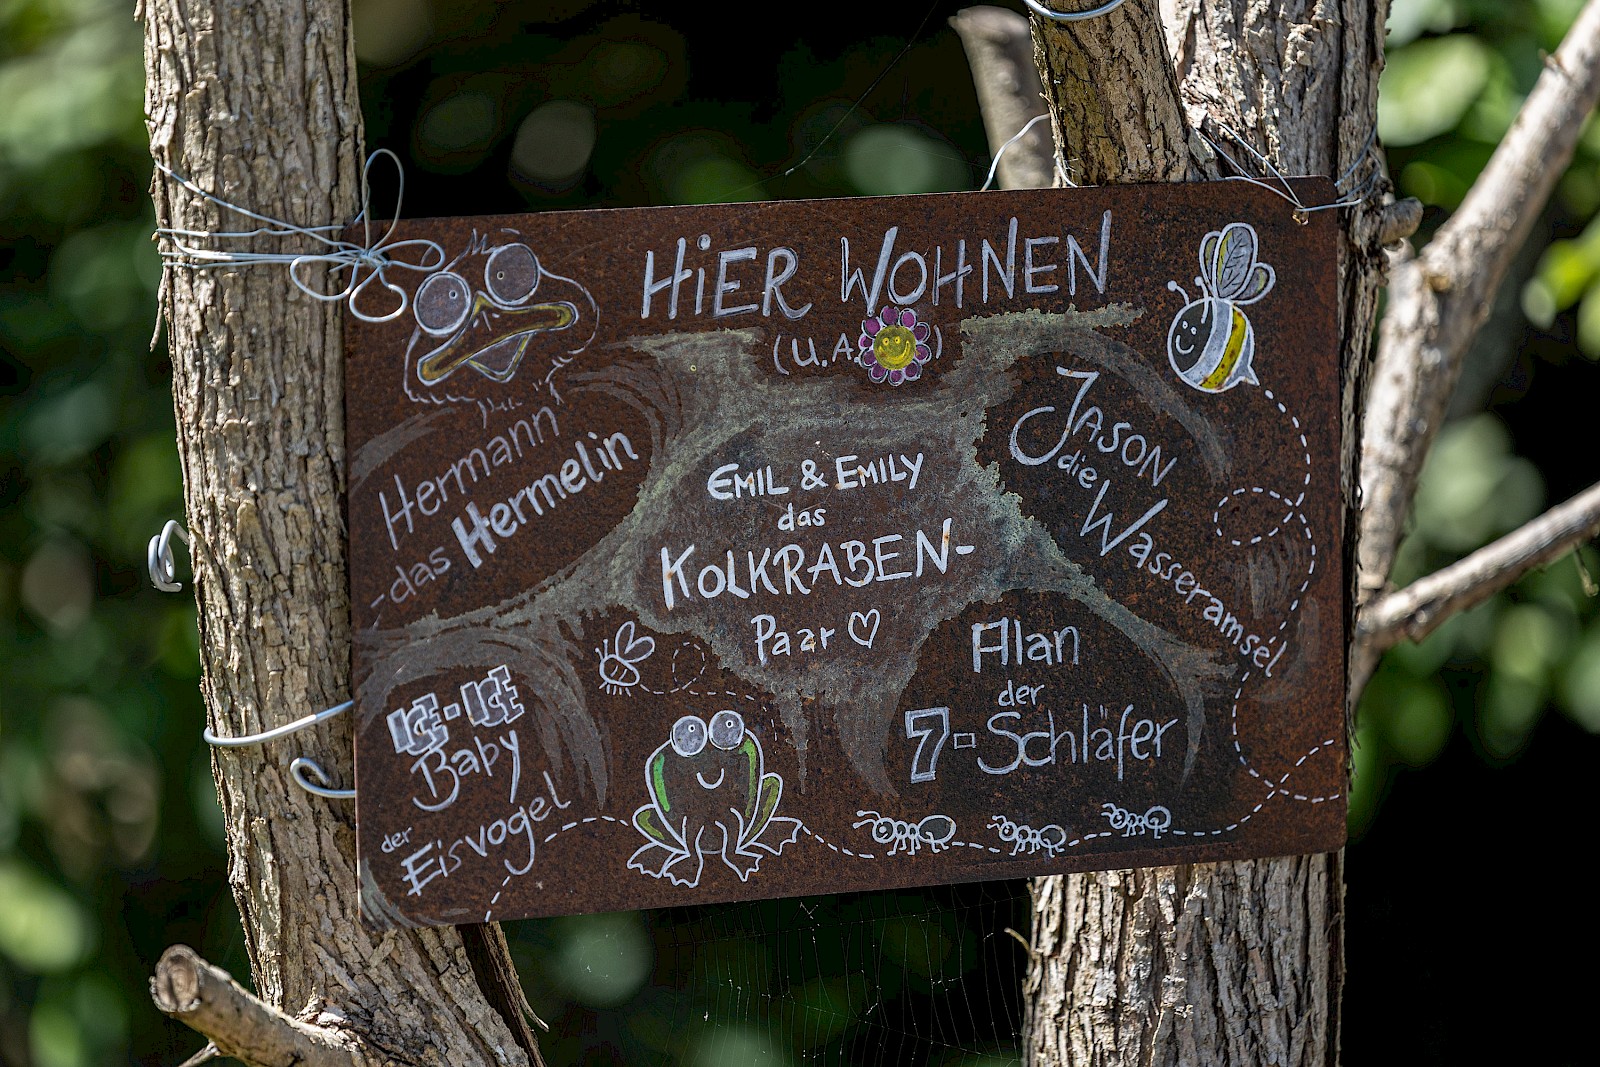 HiER WOHNEN
(U.A.)
Hermann
-das Hermelin
EMIL & EMILY
das
KOLKRABEN-
Paar
JASON
die Wasseramsel
Alan
der
7-Schläfer
ICE-ICE
Baby
der
Eisvogel